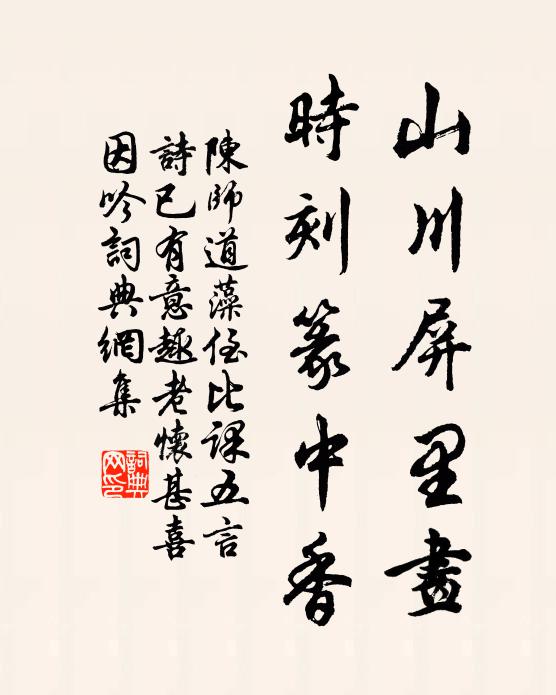 山川屏里畫
時刻篆中香
陳師道藻侄比課五言
詩已有意趣老懷甚喜
因吟詞典網集
詞典網印